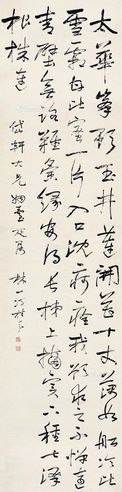 太華峯頭玉井蓮開花十丈藕如船冷比
雪霜甘比蜜一片入口沈痾痊我欲求之不憚遠
青壁無路難夤緣安得長梯上摘實下種七澤
根株連
岱軒大兄姻
林